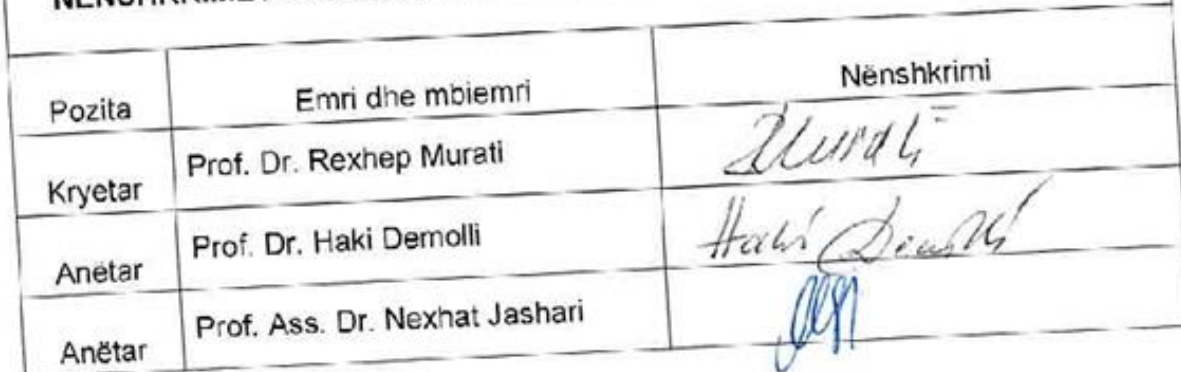 Pozita Emri dhe mbiemri Nënshkrimi
Kryetar Prof. Dr. Rexhep Murati Murati
Anëtar Prof. Dr. Haki Demolli Haki Demolli
Anëtar Prof. Ass. Dr. Nexhat Jashari